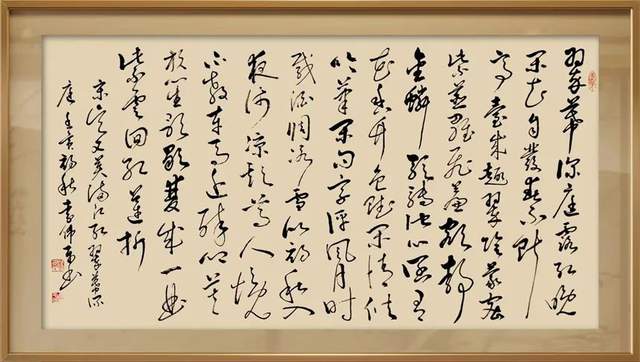 翠幕深庭露红晚
闲花自發春不断
亭臺成趣翠陰蒙密
紫燕雛飛簾額静
金鳞影轉池心阔有
花香竹色赋闲情供
吟筆闲问字評風月時
載酒調冰雪似初秋入
夜浅凉欺葛人境
不教车马近醉吟莫
放笙歌歇倩雙成一曲
紫雲回红蓮折
宋吴文英满江红翠幕深
庭 初秋 書